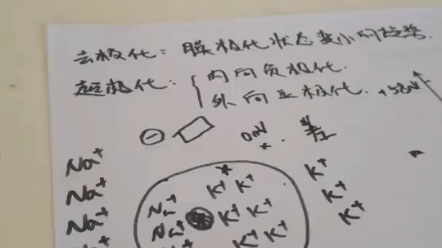 去极化：膜极化状态变小的趋势.
超极化：
内向负极化.
外向正极化.
0mV
差
Na⁺ Na⁺ Na⁺ Na⁺
K⁺ K⁺ K⁺
K⁺ K⁺
Na⁺ K⁺ K⁺
Na⁺ K⁺ K⁺
K⁺ K⁺